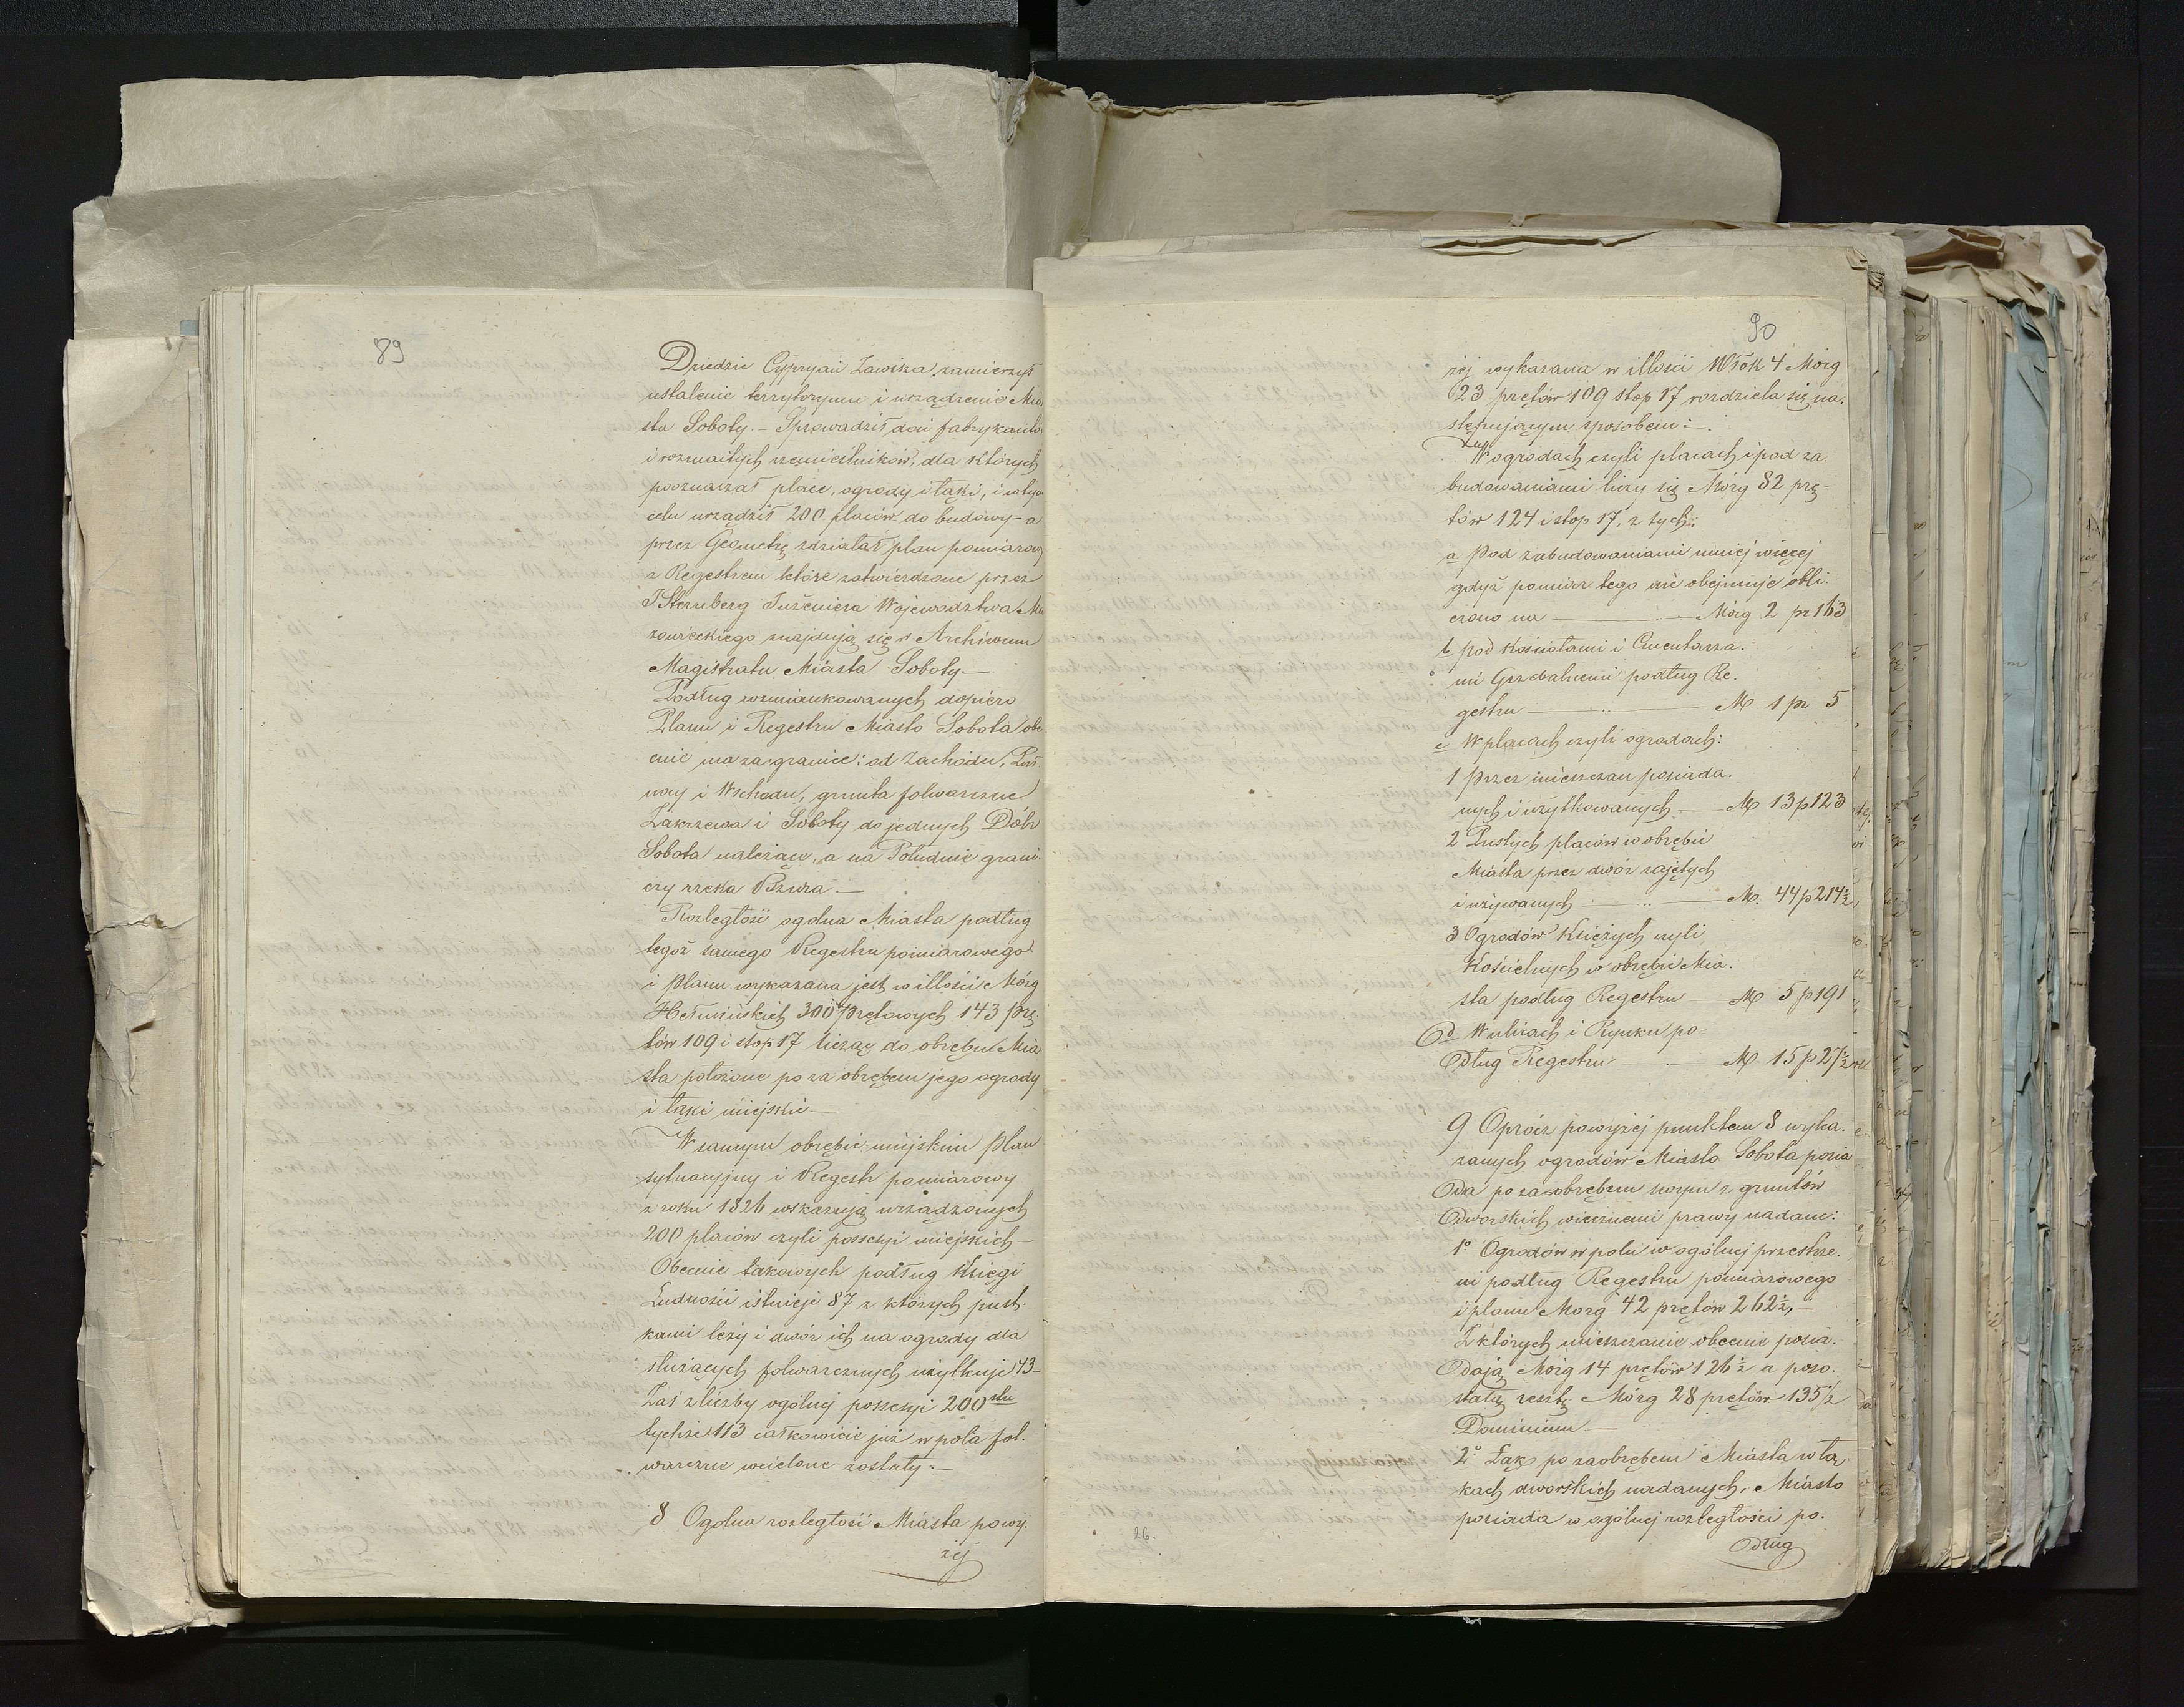 89
Dziedzic Cypryan Zawisza zamierzył
ustalenie terrytoryum i urządzenie Mia
sta Soboty. – Sprowadził doń fabrykantów
i rozmaitych rzemieślników, dla których
poznaczał place, ogrody i łąki, i w tym
celu urządził 200 placów do budowy – a
przez Geometrę zdziałał plan pomiarowy
z Regestrem które zatwierdzone przez
Sternberg Inżeniera Województwa Ma
zowieckiego znajdują się w Archiwum
Magistratu Miasta Soboty –
Podług wzmiankowanych dopiero
Planu i Regestru Miasto Sobota obe
cnie ma za granice: od Zachodu, Pół.
nocy i Wschodu, grunta folwarczne
Zakrzewa i Soboty do jednych Dóbr
Sobota należące, a na Południe grani.
czy rzeka Bzura. –
Rozległość ogólna Miasta podług
tegoż samego Regestru pomiarowego
i planu wykazana jest w illości Mórg
Hełmińskich 300 prętowych 143 prę.
tów 109 i stop 17 licząc do obrębu Mia
sta położone po za obrębem jego ogrody
i łąki miejskie –
W samym obrębie miejskim plan
sytuacyjny i Regestr pomiarowy
z roku 1826 wskazują urządzonych
200 placów czyli possesyi miejskich –
Obecnie takowych podług Księgi
Ludności istnieje 87 z których pust.
kami leży i dwór ich na ogrody dla
służących folwarcznych użytkuje 43 –
Zaś z liczby ogólnej possesyi 200 stu
tychże 113 całkowicie już w pola fol.
warczne wcielone zostały. –
8 Ogólna rozległość Miasta powy.
żej
90
żej wykazana w illości Włók 4 Mórg
23 prętów 109 stop 17 rozdziela się na.
stępującym sposobem: –
W ogrodach czyli placach i pod za.
budowaniami liczy się Mórg 82 prę=
tów 124 i stop 17, z tych:
a Pod zabudowaniami mniej więcej
gdyż pomiar tego nie obejmuje obli.
czono na – Mórg 2 pr 163
b pod Kościołami i Cmentarza.
mi Grzebalnemi podług Re.
gestru – M 1 pr 5
c W placach czyli ogrodach:
1 przez mieszczan posiada.
nych i użytkowanych – M 13 p 123
2 Pustych placów w obrębie
Miasta przez dwór zajętych
i używanych – M. 44 p 214½
3 Ogrodów Księżych czyli
Kościelnych w obrębie Mia.
sta podług Regestru – M 5 p 191
d W ulicach i Rynku po=
dług Regestru – M 15 p 27½
9 Oprócz powyżej punktem 8 wyka.
zanych ogrodów Miasto Sobota posia
da po za obrębem swym z gruntów
dworskich wiecznemi prawy nadane:
1º Ogrodów w polu w ogólnej przestrze.
ni podług Regestru pomiarowego
i planu Morg 42 prętów 262½, –
Z których mieszczanie obecnie posia.
dają Mórg 14 prętów 126½ a pozo.
stałą resztę Mórg 28 prętów 135½
Dominium –
2º Łąk po za obrębem Miasta w łą
kach dworskich nadanych, Miasto
posiada w ogólnej rozległości po.
dług
26.